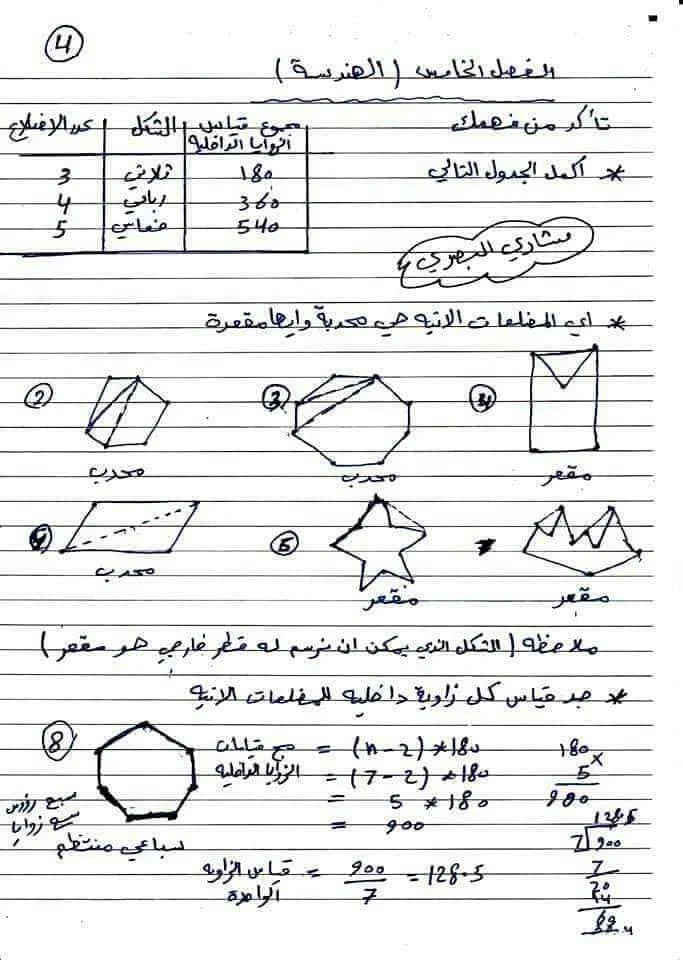 4
الفصل الخامس (الهندسة)
تأكد من فهمك
* اكمل الجدول التالي
عدد الاضلاع | الشكل | مجموع قياس الزوايا الداخلية
3 | ثلاثي | 180
4 | رباعي | 360
5 | خماسي | 540
مشاري البصري
* اي المضلعات الاتيه هي محدبة وايها مقعرة
2 محدب
3 محدب
مقعر
محدب
5 مقعر
مقعر
ملاحظه (الشكل الذي يمكن ان نرسم له قطر خارجي هو مقعر)
* جد قياس كل زاوية داخليه للمضلعات الاتيه
8
سبع رؤوس
زوايا
سباعي منتظم
قياسات الزوايا الداخليه = (n-2)*180
= (7-2)*180
= 5*180
= 900
180
× 5
900
قياس الزاويه الواحدة = 900/7 = 128.5
128.5
7 900
7
20